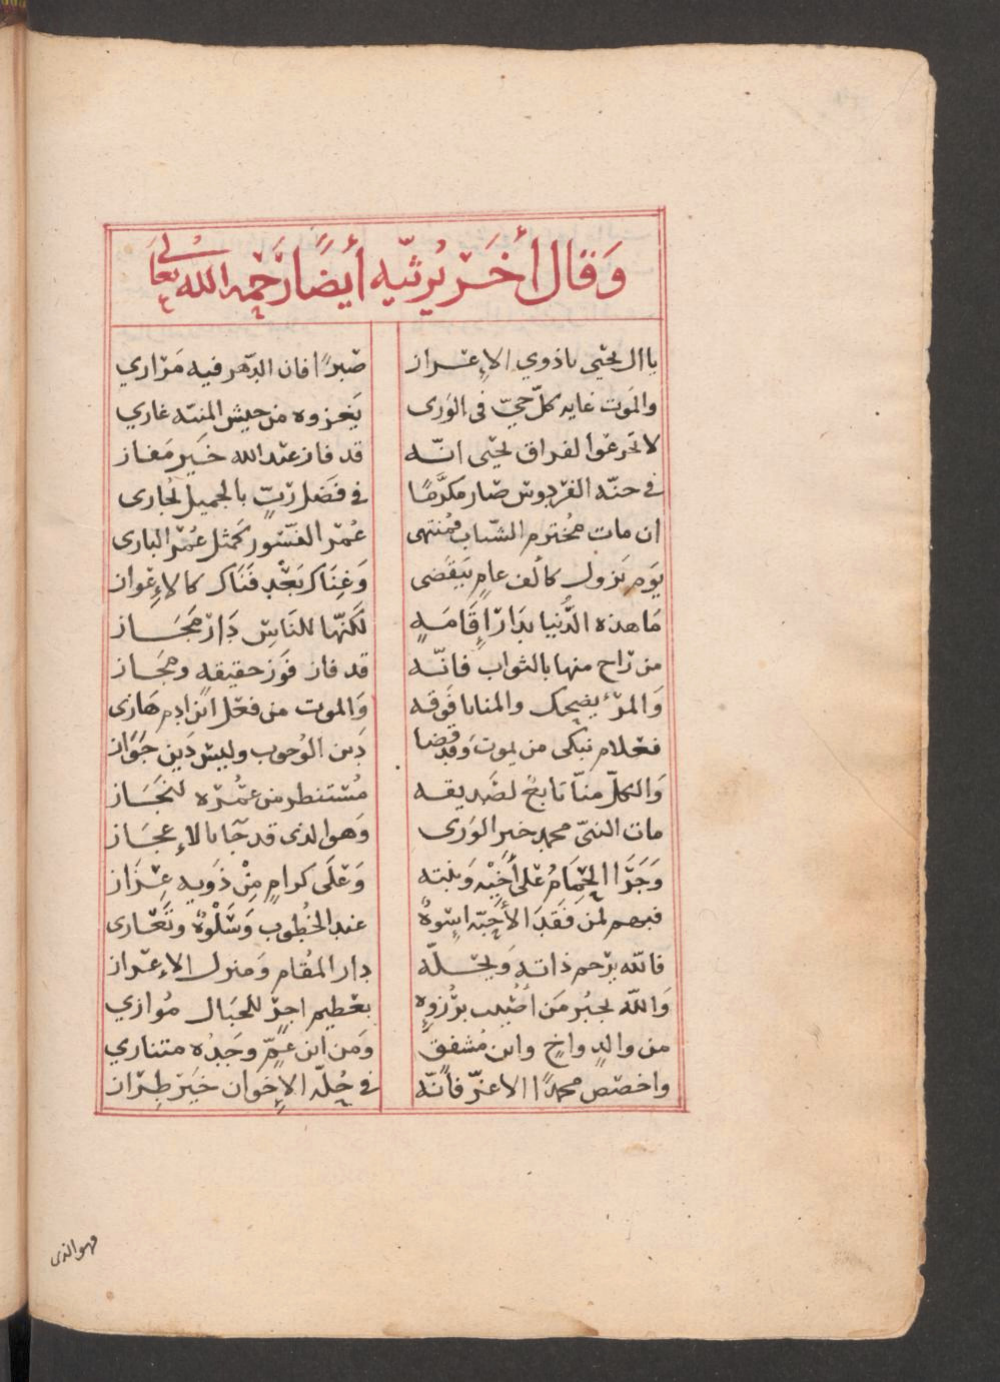 وَقَال أخَر يُرثيّه أيضًا رَحمه الله تعالى
ياال يحيى ياذوي الإعزاز صَبرًا فان الدّهر فيه مَرازي
والمَوت غايه كلّ حيّ فى الوَرى يَغزوه من جيش المنيّه غازي
لا تجزعوا لفراق يحيى انّه قد فاز عند الله خَير مَفاز
في جنّه الفردوس صَار مكرَّمًا في فَضل رَبٍّ بالجميل يُجازى
ان مات مخترم الشّباب فمنتهى عُمر النسور كمثل عُمر البازى
يوَم يَزول كألف عامٍ يَنقَضى وَغِنَاك بَعد فَنَاك كالإعْواز
مَا هذه الدُّنيا بدَار إقَامَةٍ لَكنّها للنَاس دَار مَجَاز
من رَاح منها بالثواب فانّه قد فاز فَوز حقيقهٍ ومجَاز
وَالمرء يضحك والمنايا فَوقه وَالموت من فعل ابن ادم هَازى
فعَلام نبكى من يموت وَقد قضا دَين الوُجوب وليسَ دَين جَوَاز
وَالكلّ منّا تابعٌ لصَديقه مُستنظر من عُمره لنجَاز
مات النبىّ محمد خير الوَرى وَهوالذى قد جَا بالإعجَاز
وَجَرَا الحِمَامُ عَلى أخَيه وَبنته وَعَلَى كرامٍ مِنْ ذَويه عِزَاز
فبهم لمن فَقدَ الأحِبّه اسْوةٌ عند الخُطوب وَسَلْوةٌ وتَعَازى
فالله يرحم ذاته وَيحلّه دار المقَام وَمنزل الإعزاز
وَالله يجبُر مَن اُصيب برُزوِهِ بعَظيم اجرٍ للجبَال مُوازي
من والدٍ واخٍ وابن مُشفق وَمن ابن عمٍّ وَجدُه متنازي
واخصّص محمدًا الاعزّ فأنّه في جُملَه الإخوان خَيرَ طِرَاز
فهو الذى